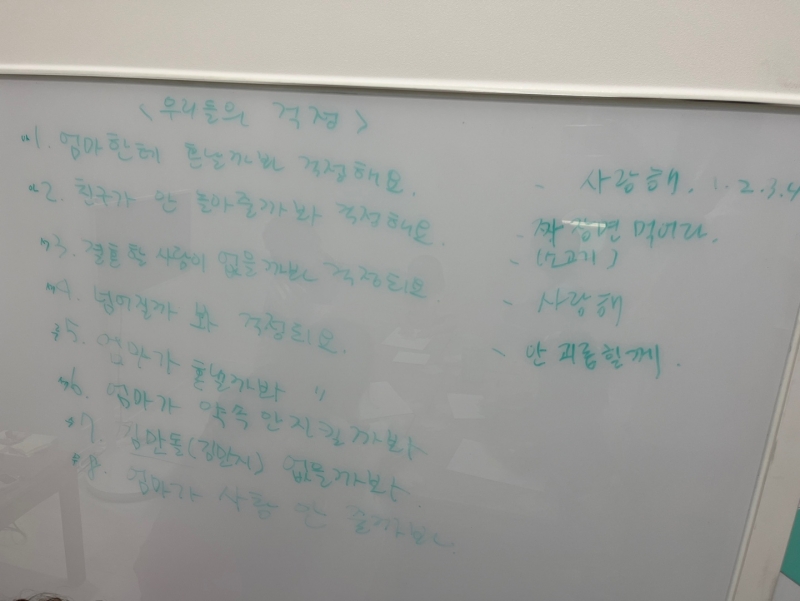 <우리들의 걱정>
1. 엄마한테 혼날까봐 걱정해요.
2. 친구가 안 놀아줄까봐 걱정해요.
3. 결혼할 사람이 없을까봐 걱정되요.
4. 넘어질까 봐 걱정되요.
5. 엄마가 혼낼까봐 〃
6. 엄마가 약속 안 지킬까봐
7. 김만돌(김만지) 없을까봐.
8. 엄마가 사탕 안 줄까봐.
- 사랑해. 1.2.3.4
- 짜장면 먹어라.
- (소고기)
- 사랑해
- 안 괴롭힐께.